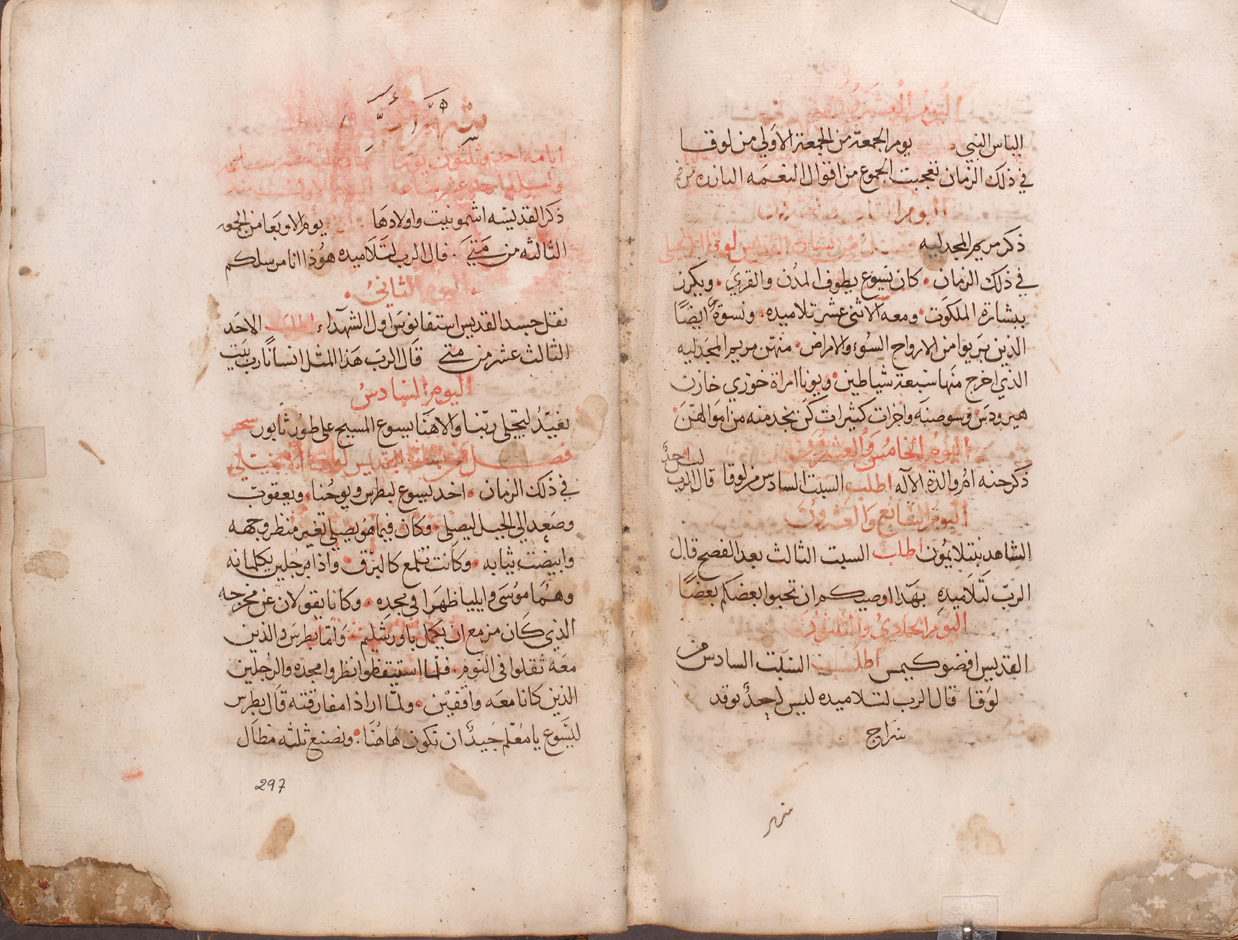 اليوم العشرون
الياس النبي يوم الجمعة من الجمعة الاولي من لوقا
في ذلك الزمان تعجبت الجموع من اقوال النعمه البارزه من فم
اليوم
ذكر مريم المجدليه فصل من بشارة القديس لوقا الانجيلي
في ذلك الزمان كان يسوع يطوف المدن والقري ويكرز
ببشارة الملكوت ومعه الاثني عشر تلاميذه ونسوة ايضًا
الذين بريوا من الارواح السوء والامراض منهن مريم المجدليه
الذي اخرج منها سبعة شياطين ويونا امراة خوزي خازن
هيرودس وسوصنه واخرات كثيرات كن يخدمنه من اموالهن
اليوم الخامس والعشرون
ذكر حنه ام والدة الاله اطلب السبت السادس من لوقا قال الرب ليس احدٌ
اليوم السابع والعشرون
الشاهد بنتلايمون اطلب السبت الثالث بعد الفصح قال
الرب لتلاميذه بهذا اوصيكم ان تحبوا بعضكم بعضًا
اليوم الحادي والثلثون
القديس افضوكيمس اطلب السبت السادس من
لوقا قال الرب لتلاميذه ليس احدٌ يوقد
سراج
شهر
شهر اب
ايامه احد وثلثون يومًا
ذكر القديسه اشمونيت واولادها يوم الاربعا من الجمعه
الثالثه من متي قال الرب لتلاميذه هوذا انا مرسلكم
اليوم الثاني
نقل جسد القديس استفانوس اول الشهدآء اطلب الاحد
الثالث عشر من متي قال الرب هذا المثل انسانًا رب بيت
اليوم السادس
نعيّد لتجلي ربنا والاهنا يسوع المسيح علي طور ثابور سحر
فصل من بشارة القديس لوقا الانجيلي
في ذلك الزمان اخد يسوع لبطرس ويوحنا ويعقوب
وصعد الي الجبل ليصلي وكان فيما هو يصلي تغير منظر وجهه
وابيضت ثيابه وكانت تلمع كالبرق واذا برجلين يكلمانه
وهما موسي وايليا ظهرا في مجده وكانا يقولان عن مخرجه
الذي كان مزمع ان يكمل باورشليم واما بطرس والذين
معه ثقلوا في النوم فلما استيقظوا نظروا مجده والرجلين
الذين كانا معه واقفين ولما ارادا مفارقته قال بطرس
ليسوع يا معلم جيدٌ ان نكون هاهنا ونصنع ثلثه مظال
297